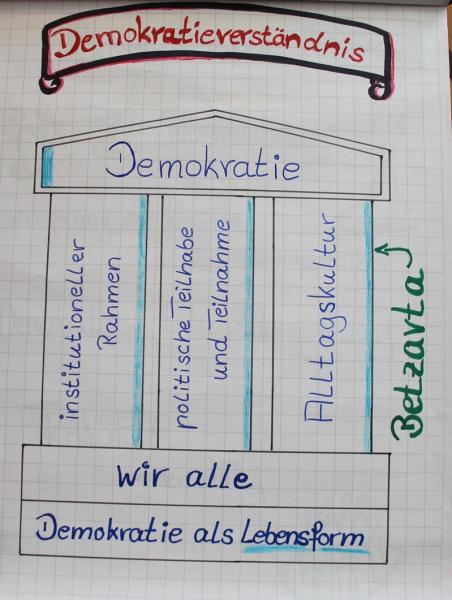 Demokratieverständnis
Demokratie
institutioneller
Rahmen
politische Teilhabe
und Teilnahme
Alltagskultur
Betzavta
wir alle
Demokratie als Lebensform